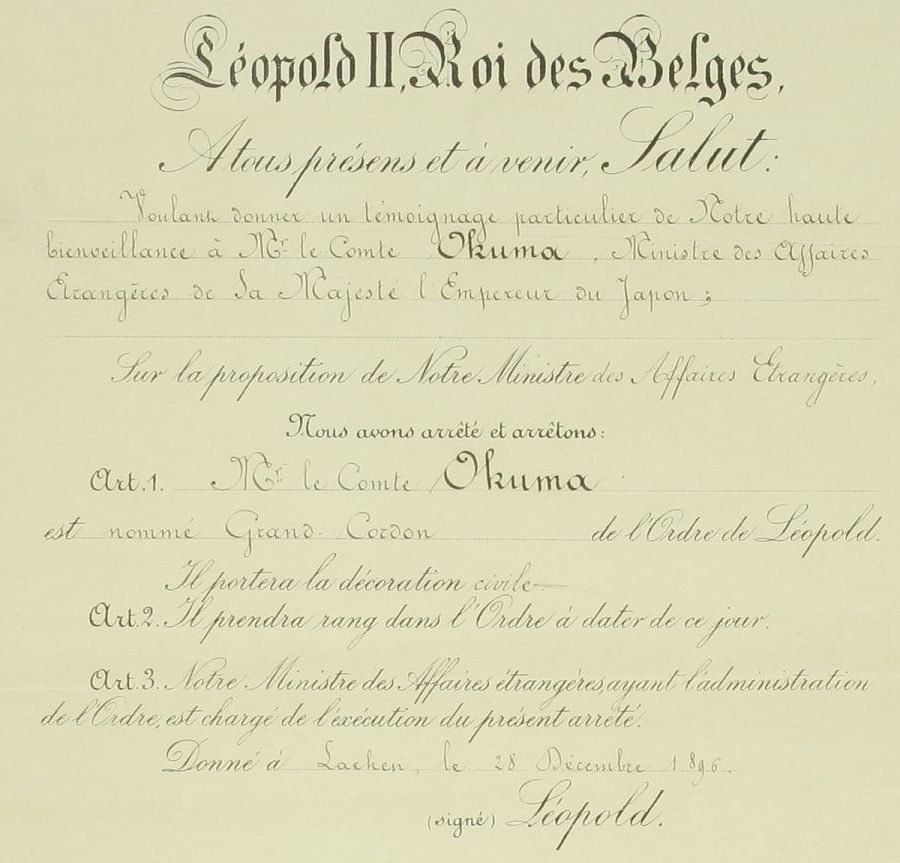 Léopold II, Roi des Belges,
A tous présens et à venir, Salut:
Voulant donner un témoignage particulier de Notre haute
bienveillance à Mr. le Comte Okuma, Ministre des Affaires
Etrangères de Sa Majesté l'Empereur du Japon;
Sur la proposition de Notre Ministre des Affaires Etrangères,
Nous avons arrêté et arrêtons:
Art. 1. Mr. le Comte Okuma
est nommé Grand-Cordon de l'Ordre de Léopold.
Il portera la décoration civile
Art. 2. Il prendra rang dans l'Ordre à dater de ce jour.
Art. 3. Notre Ministre des Affaires étrangères, ayant l'administration
de l'Ordre, est chargé de l'éxécution du présent arrêté.
Donné à Laeken, le 28 Décembre 1896.
(signé) Léopold.